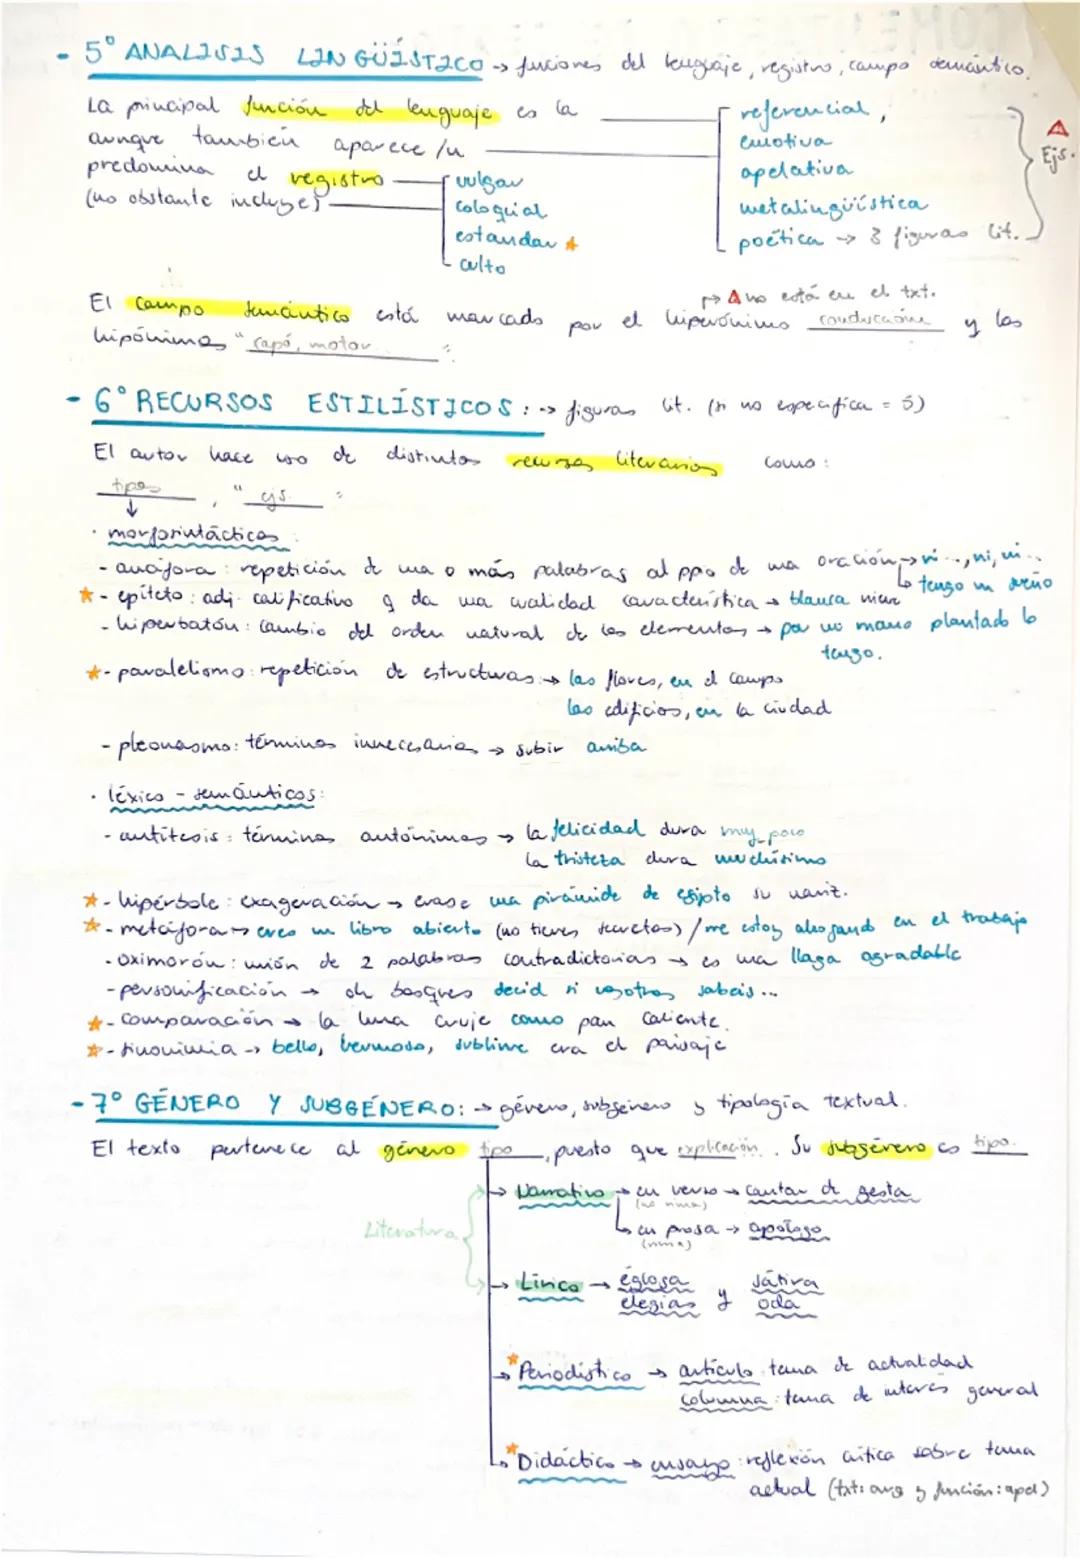 - 5º ANALISIS LINGÜÍSTICO → funciones del lenguaje, registro, campo semántico.
La principal función del lenguaje es la
referencial,
aunque también aparece /n
emotiva
Ejs.
predomina el registro
vulgar
apelativa
(no obstante incluye)
coloquial
metalingüística
estandar
poética → 3 figuras lit.
culto
↱ no está en el txt.
El campo semántico está marcado por el hiperónimo conducción y los
hipónimos "capó, motor "
- 6º RECURSOS ESTILÍSTICOS: → figuras lit. (si no especifica = 5)
El autor hace uso de distintos recursos literarios como:
tipos, "ejs. "
↓
· morfosintácticos:
- anáfora: repetición de una o más palabras al ppo de una oración → ni..., ni, ni...
↳ tengo un sueño
- epíteto: adj. calificativo q da una cualidad característica → blanca nieve
- hiperbatón: cambio del orden natural de los elementos → por mi mano plantado lo
tengo.
- paralelismo: repetición de estructuras: → las flores, en el campo
los edificios, en la ciudad
- pleonasmo: términos innecesarios → subir arriba
· léxico - semánticos:
- antítesis: términos antónimos → la felicidad dura muy poco
la tristeza dura muchísimo
- hipérbole: exageración → erase una pirámide de egipto su nariz.
- metáfora → eres un libro abierto (no tienes secretos) / me estoy ahogando en el trabajo
- oximorón: unión de 2 palabras contradictorias → es una llaga agradable
- personificación → oh bosques decid si vosotros sabeis...
- comparación → la luna cruje como pan caliente.
- sinonimia → bello, hermoso, sublime era el paisaje
- 7º GÉNERO Y SUBGÉNERO: → género, subgénero y tipología textual.
El texto pertenece al género tipo, puesto que explicación. Su subgénero es tipo.
Literatura
→ Narrativo → en verso → cantar de gesta
↳ en prosa → apólogo
→ Lírico → égloga sátira
elegías y oda
→ Periodístico → artículo: tema de actualidad
columna: tema de interés general
↳ Didáctico → ensayo: reflexión crítica sobre tema
actual (txt: arg y función: apel)